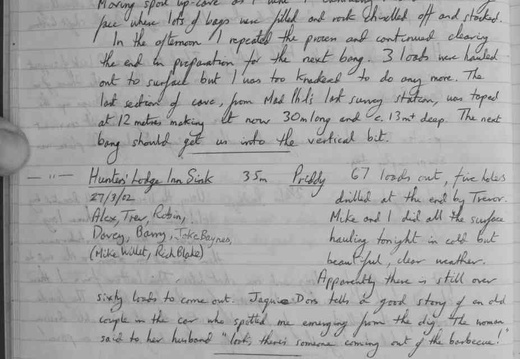 Moving spoil up-cave as I
face where lots of bags were filled and rock chiselled off and stacked.
In the afternoon I repeated the process and continued clearing
the end in preparation for the next bang. 3 loads were hauled
out to surface but I was too knackered to do any more. The
last section of cave, from Mad Phil's last survey station, was taped
at 12 metres making it now 30m long and c. 13m+ deep. The next
bang should get us into the vertical bit.
— " — Hunters' Lodge Inn Sink 35m Priddy 67 loads out, five holes
27/3/02 drilled at the end by Trevor.
Alex, Trev, Robin, Mike and I did all the surface
Davey, Barry, Jake Baynes, hauling tonight in cold but
(Mike Willet, Rich Blake) beautiful, clear weather.
Apparently there is still over
sixty loads to come out. Jaquie Dors tells a good story of an old
couple in the car who spotted me emerging from the dig. The woman
said to her husband "look, there's someone coming out of the barbecue!"